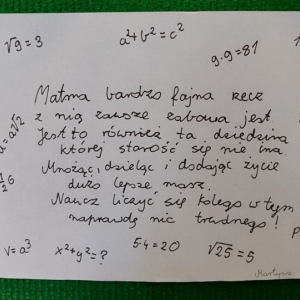 √9=3
a²+b²=c²
9·9=81
a=a√2
Matma bardzo fajna rzecz
z nią zawsze zabawa jest
Jest to również ta dziedzina
której starość się nie ima.
Mnożąc, dzieląc i dodając życie
dużo lepsze masz.
Naucz liczyć się kolego w tym
naprawdę nic trudnego!
V=a³
x²+y²=?
5·4=20
√25=5
Martyna